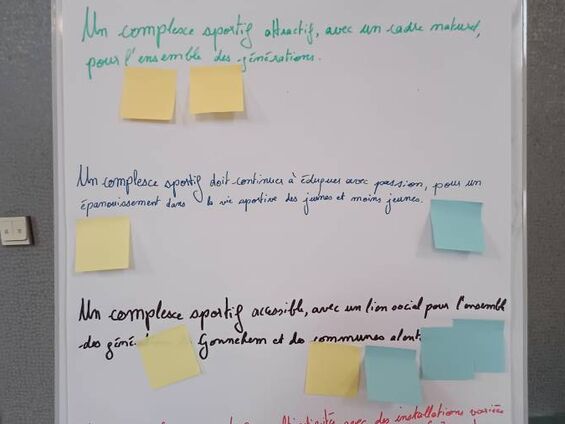 Un complexe sportif attractif, avec un cadre naturel,
pour l'ensemble des générations.
Un complexe sportif doit continuer à éduquer avec passion, pour un
épanouissement dans la vie sportive des jeunes et moins jeunes.
Un complexe sportif accessible, avec un lien social pour l'ensemble
des Gonnehem et des communes
avec des installations variées